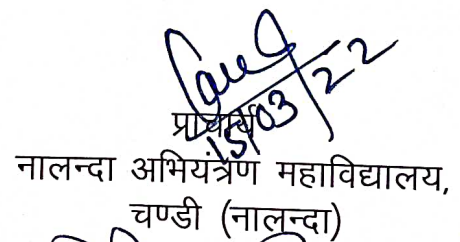 15/03/22
प्राचार्य
नालन्दा अभियंत्रण महाविद्यालय,
चण्डी (नालन्दा)